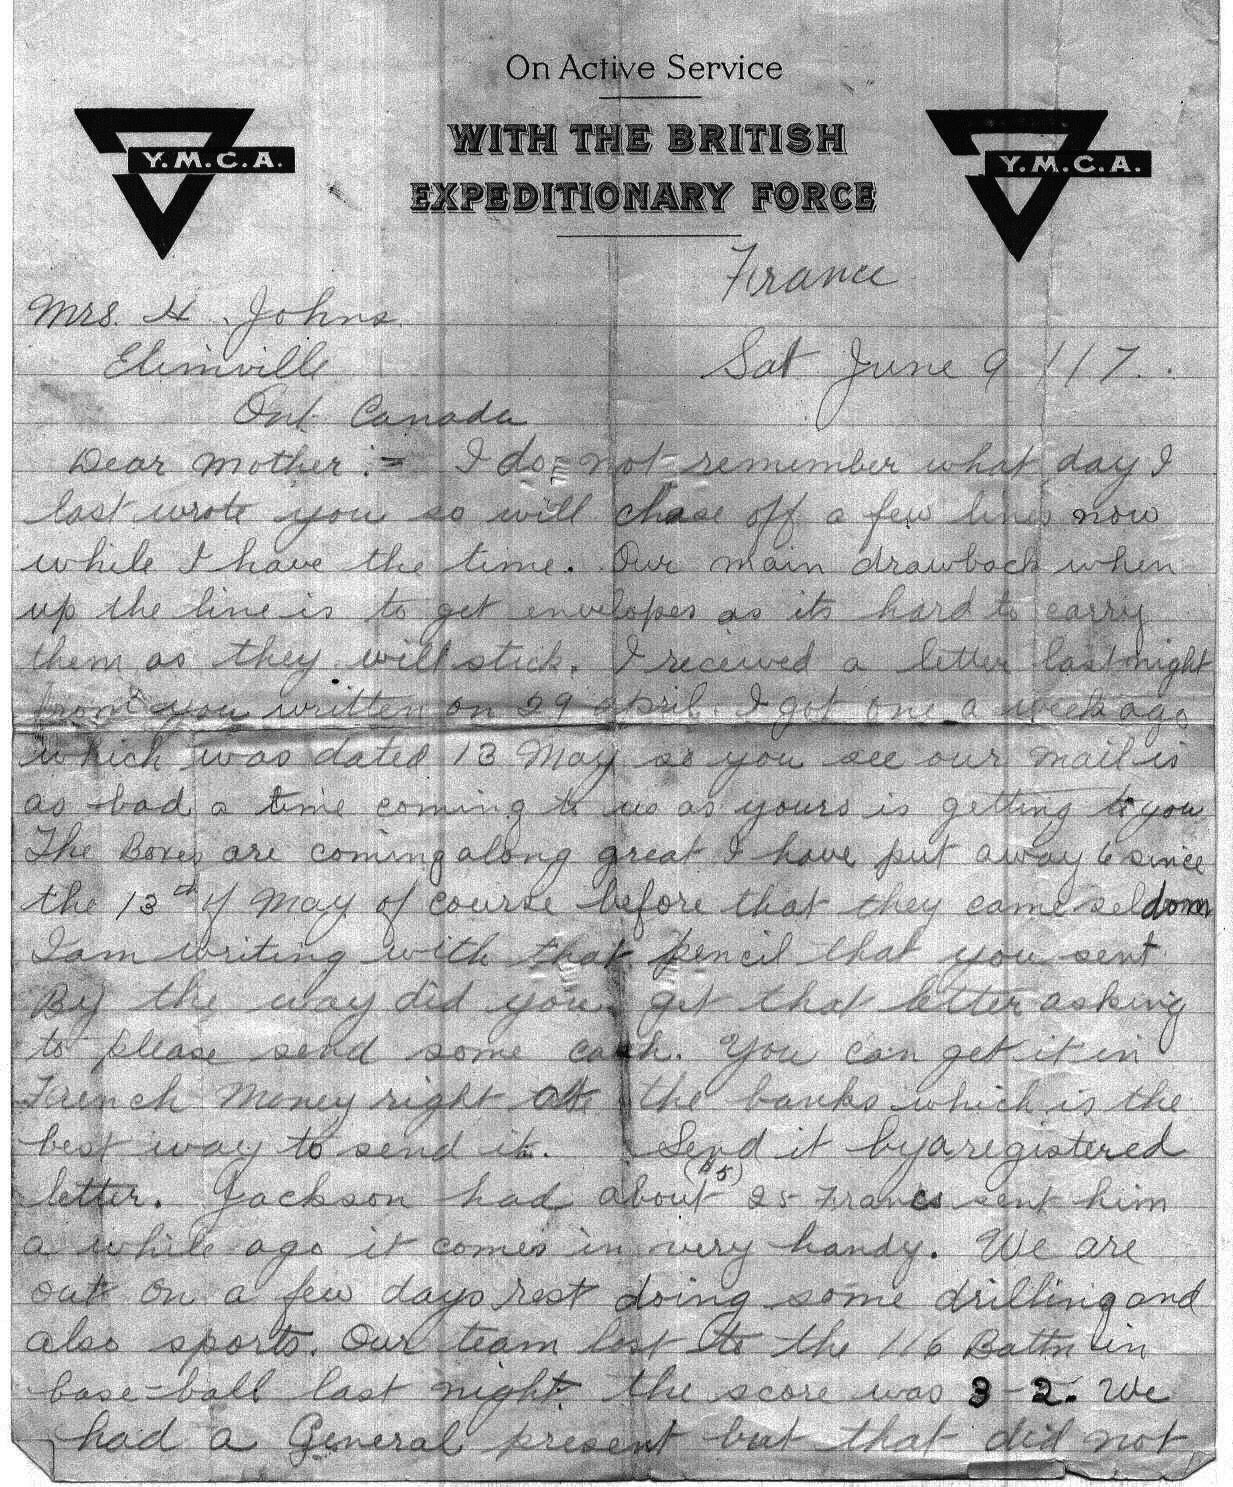 On Active Service
WITH THE BRITISH
EXPEDITIONARY FORCE
Y.M.C.A.
Y.M.C.A.
France
Mrs. H. Johns
Elimville
Sat June 9 / 17.
Ont Canada
Dear Mother :- I do not remember what day I
last wrote you so will chase off a few lines now
while I have the time. Our main drawback when
up the line is to get envelopes as its hard to carry
them as they will stick. I received a letter last night
from you written on 29 April. I got one a week ago
which was dated 13 May so you see our mail is
as bad a time coming to us as yours is getting to you
The Boxes are coming along great I have put away 6 since
the 13th of May of course before that they came seldom
I am writing with that pencil that you sent
By the way did you get that letter asking
to please send some cash. You can get it in
French Money right at the banks which is the
best way to send it. Send it by a registered
letter. Jackson had about ($5) 25 Francs sent him
a while ago it comes in very handy. We are
out on a few days rest doing some drilling and
also sports. Our team lost to the 116 Battn in
base-ball last night. the score was 3-2. We
had a General present but that did not